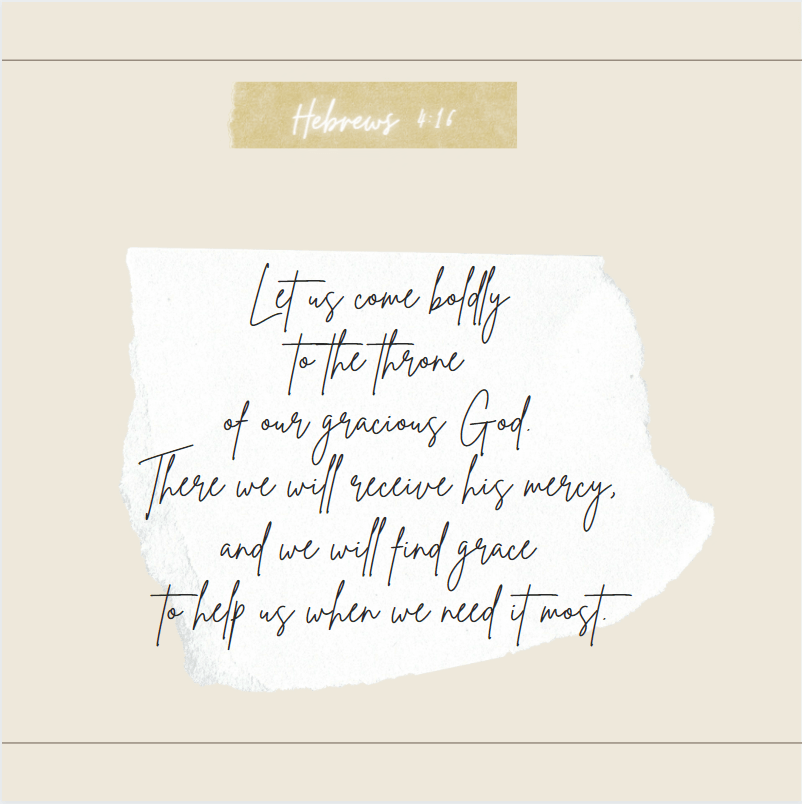 Hebrews 4:16
Let us come boldly
to the throne
of our gracious God.
There we will receive his mercy,
and we will find grace
to help us when we need it most.